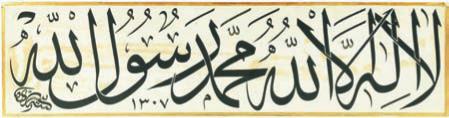 لا إله إلا الله محمد رسول الله
١٣٠٧